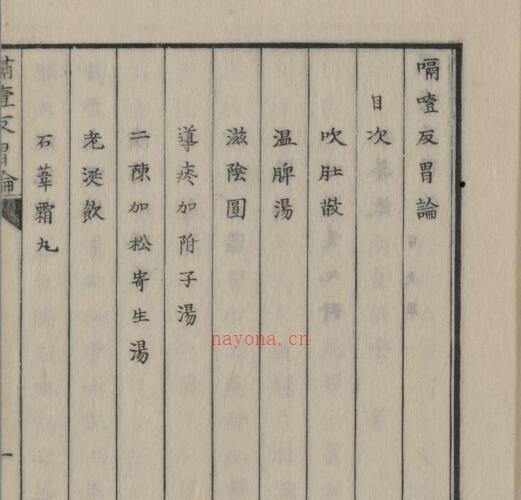 嗝噎反胃論
目次
吹肚散
温脾湯
滋陰圓
導痰加附子湯
二陳加松寄生湯
老涎飲
石葦霜丸
嗝噎反胃論
一
nayona.cn